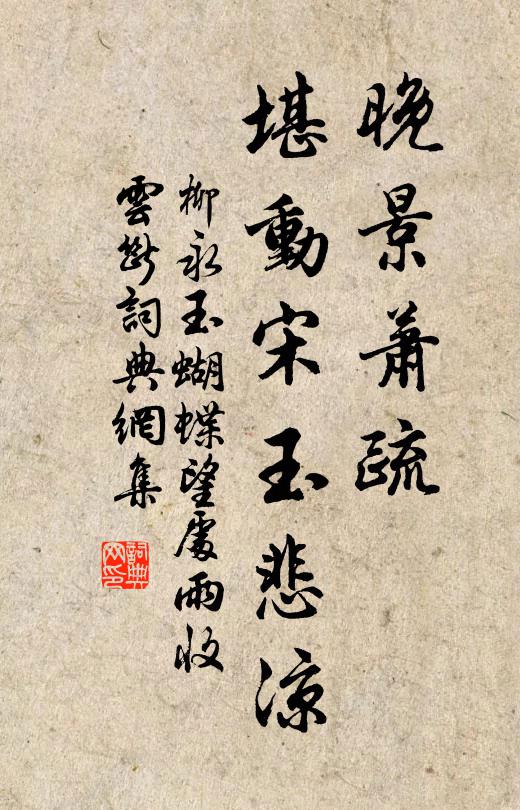 晚景蕭疏
堪動宋玉悲涼
柳永玉蝴蝶望處雨收
雲斷詞典網集
詞典
网印